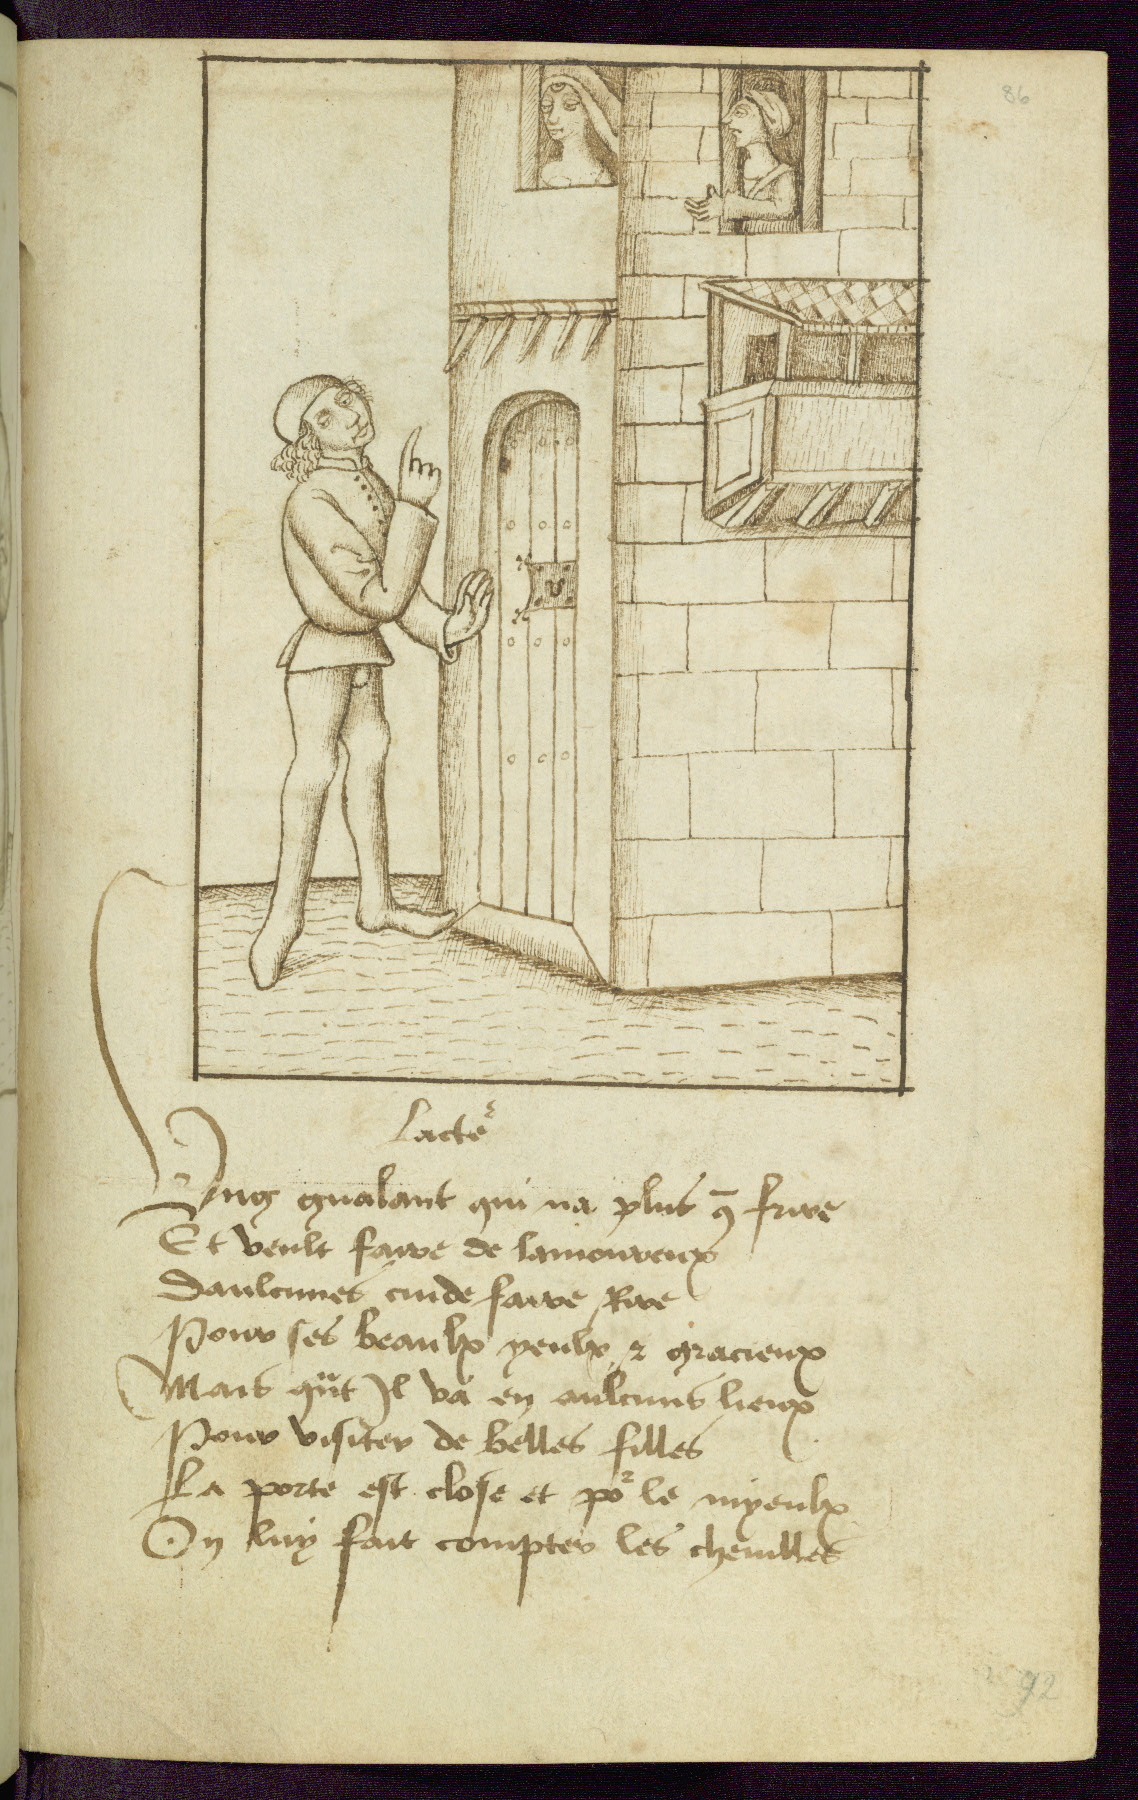 86
Lacte᷑
Ung gualant qui na plus q̄ frire
Et veult faire de lamoureux
Daulcunes cuide faire Rire
Pour ses beaulx yeulx & gracieux
Mais qũt Il va en aulcuns lieux
Pour visiter de belles filles
La porte est close et poʳ le myeulx
On luy fait compter les chevilles
92